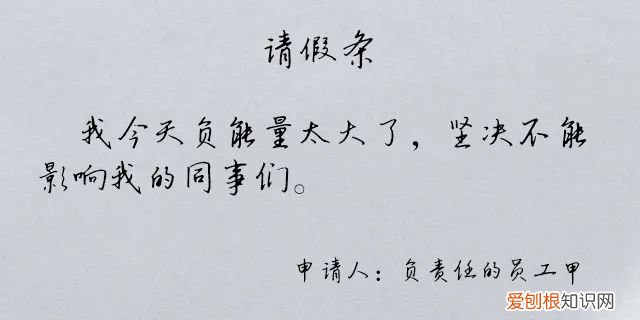 请假条
我今天负能量太大了，坚决不能
影响我的同事们。
申请人：负责任的员工甲
爱刨根知识网